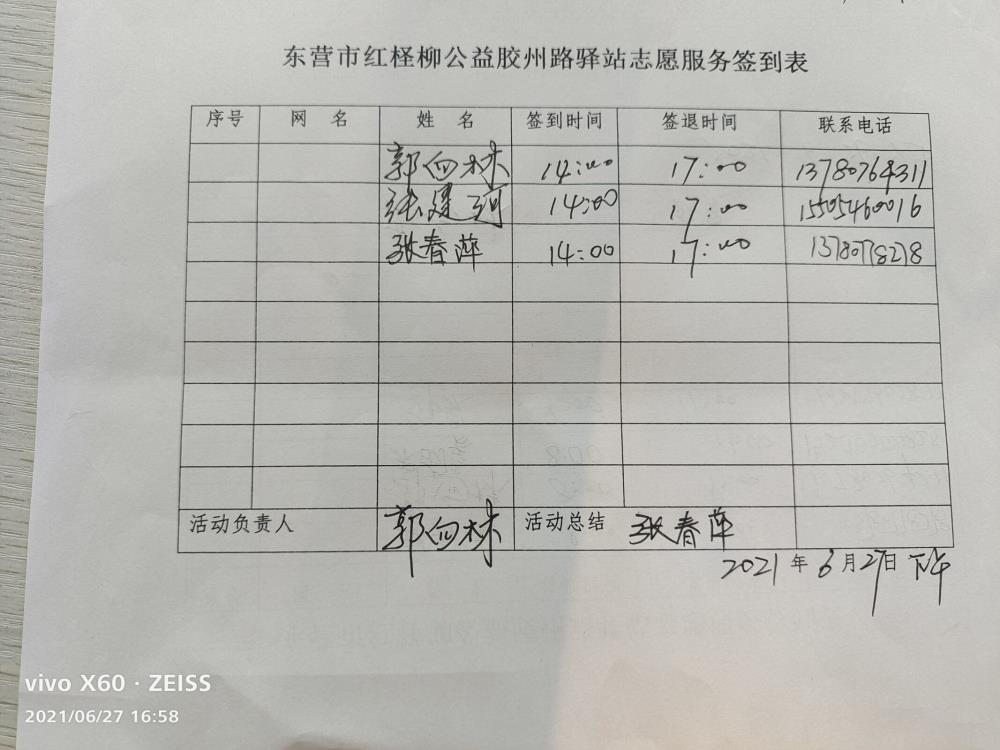 东营市红柽柳公益胶州路驿站志愿服务签到表
序号 网 名 姓 名 签到时间 签退时间 联系电话
郭向林 14:00 17:00 13780764311
张建河 14:00 17:00 15505460016
张春萍 14:00 17:00 13780778278
活动负责人 郭向林 活动总结 张春萍
2021 年 6 月 27 日 下午
vivo X60 · ZEISS
2021/06/27 16:58